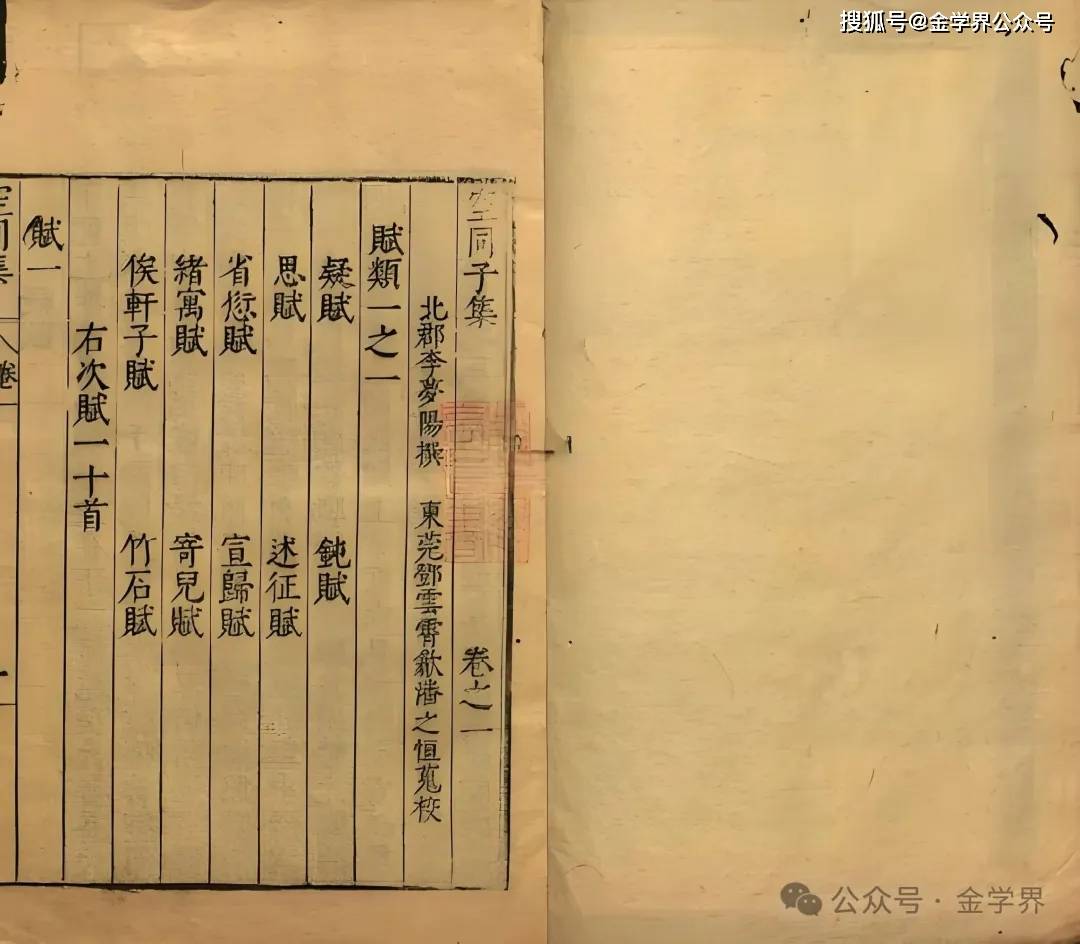 搜狐号@金学界公众号
空同子集 卷之一
北郡李夢陽撰 東莞鄧雲霄歙潘之恒蒐校
賦類一之一
疑賦 鈍賦
思賦 述征賦
省愆賦 宣歸賦
緒寓賦 寄兒賦
俟軒子賦 竹石賦
右次賦一十首
賦一
空同集 卷一
公众号 · 金学界